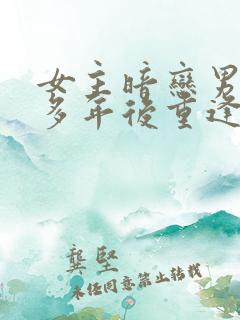 女主暗戀男
多年後重逢
龔堅
未任同意禁止轉載